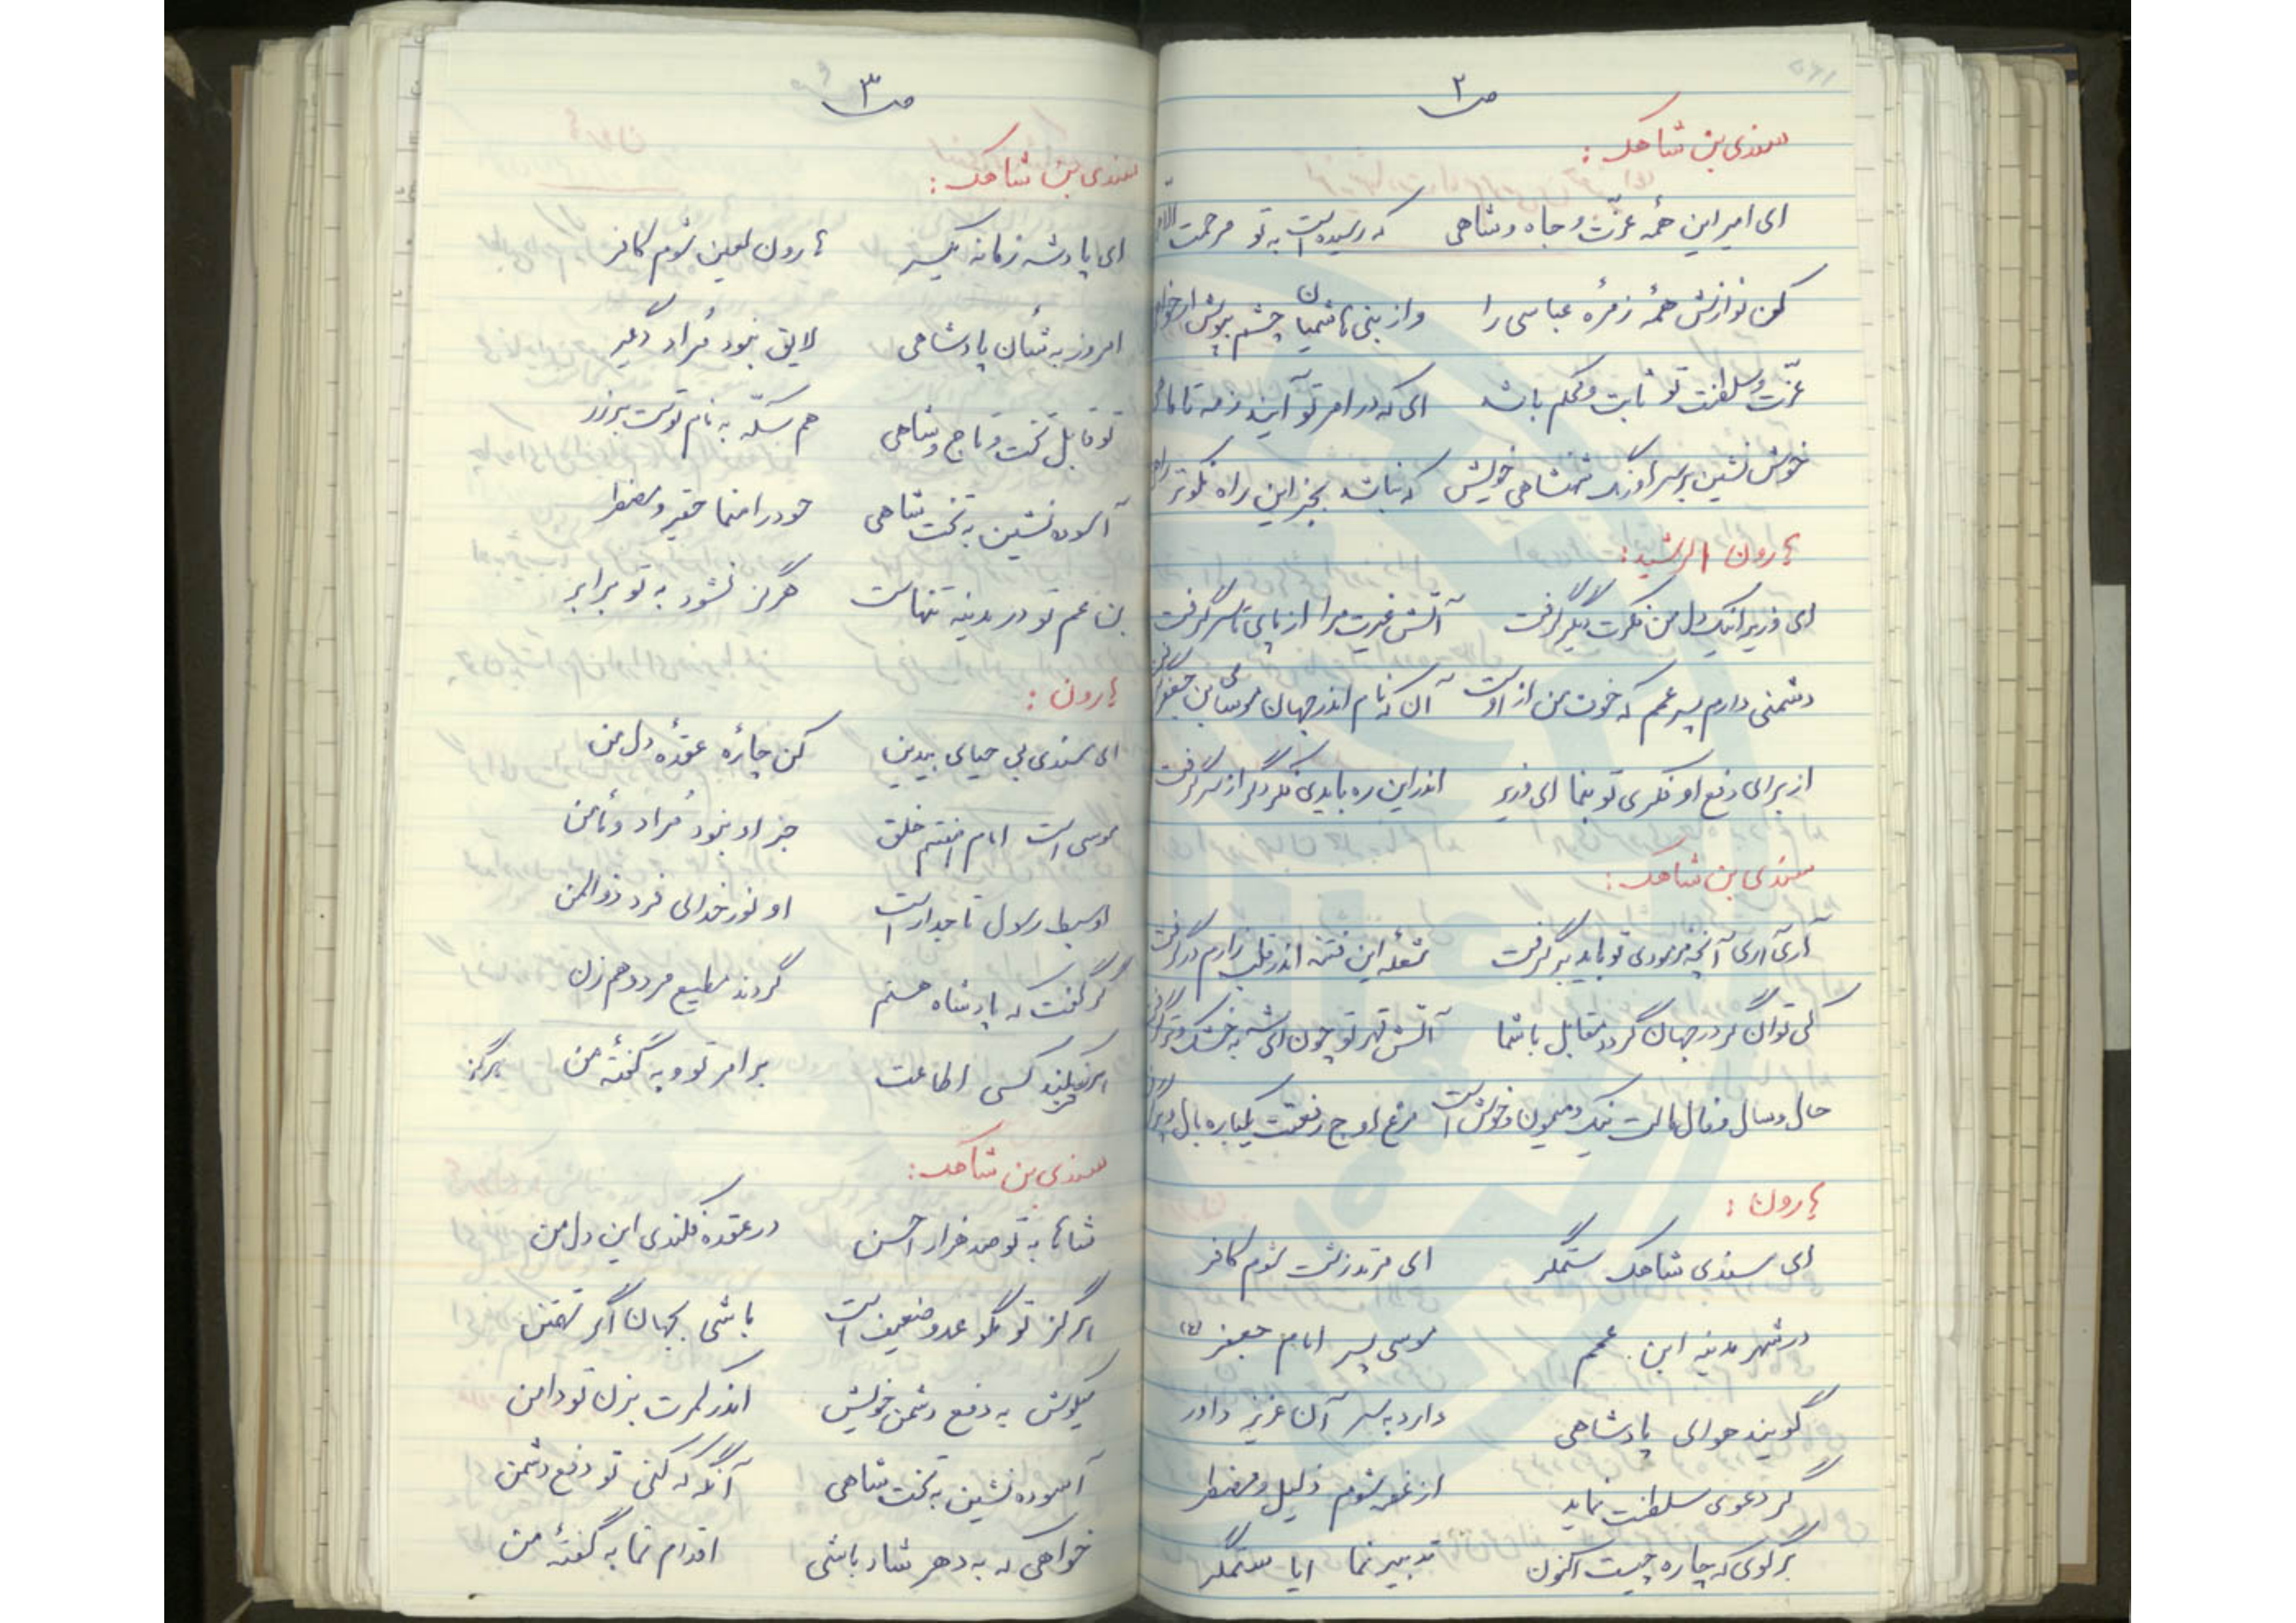 ص ۲
سندی بن شاهک :
ای امیر این همه عزّت و جاه و شاهی که رسیده است به تو مرحمت
کن نوازش همهٔ زمرهٔ عباسی را واز بنی هاشمیان چشم بپوش ار
عزّت و سلطنت تو ثابت و محکم باشد ای که در امر تو آیند زمه تا ماهی
خوش نشین بر سر اورنگ شهنشاهی خویش که نباشد بجز این راه نکوتر راهی
هارون الرشید :
ای وزیر اینک دل من فکرت دیگر گرفت آتش غیرت مرا از پای تا سر گرفت
دشمنی دارم پسر عمم که خون من از اوست آن که نام اندر جهان موسی ابن جعفر گرفت
از برای دفع او فکری تو بنما ای وزیر اندر این ره بایدی فکر دگر از سر گرفت
سندی بن شاهک :
آری آری آنچه فرمودی تو باید برگرفت شعله این فتنه اندر قلب زارم در گرفت
کی توان در جهان گردد مقابل با شما آتش قهر تو چون ای شه به خشک و تر گرفت
حال و سال و فال مالت نیک و میمون و خوش است مرغ اوج رفعتت یکباره بال و پر گرفت
هارون :
ای سندی شاهک ستمگر ای مرتد زشت شوم کافر
در شهر مدینه ابن عمم موسی پسر امام جعفر (ع)
گویند هوای پادشاهی دارد به سر آن عزیز داور
گر دعوی سلطنت نماید از غصه شوم ذلیل و مضطر
برگوی که چاره چیست اکنون تدبیر نما ایا ستمگر
ص ۳
سندی بن شاهک :
ای پادشه زمانه یکسر هارون لعین شوم کافر
امروز به شأن پادشاهی لایق نبود فراد دگیر
تو قابل تخت و تاج و شاهی هم سکّه به نام توست بر زر
آسوده نشین به تخت شاهی خود را منما حقیر و مضطر
بن عم تو در مدینه تنهاست هرگز نشود به تو برابر
هارون :
ای سندی بی حیای بیدین کن چارهٔ عقدهٔ دل من
موسی است امام هفتم خلق جز او نبود مُراد و مأمن
او سبط رسول تاجدار است او نور خدای فرد ذوالمن
گر گفت که پادشاه هستم گردند مطیع مرد و هم زن
هرگز نکند کسی اطاعت بر امر تو و به گفتهٔ من هرگز
سندی بن شاهک :
شاها به تو صد هزار احسن در عقده فکندی این دل من
هرگز تو مگو عدو ضعیف است باشی بجهان اگر تهمتن
میکوش به دفع دشمن خویش اندر کمرت بزن تو دامن
آسوده نشین به تخت شاهی آنگه که کنی تو دفع دشمن
خواهی که به دهر شاد باشی اقدام نما به گفتهٔ من